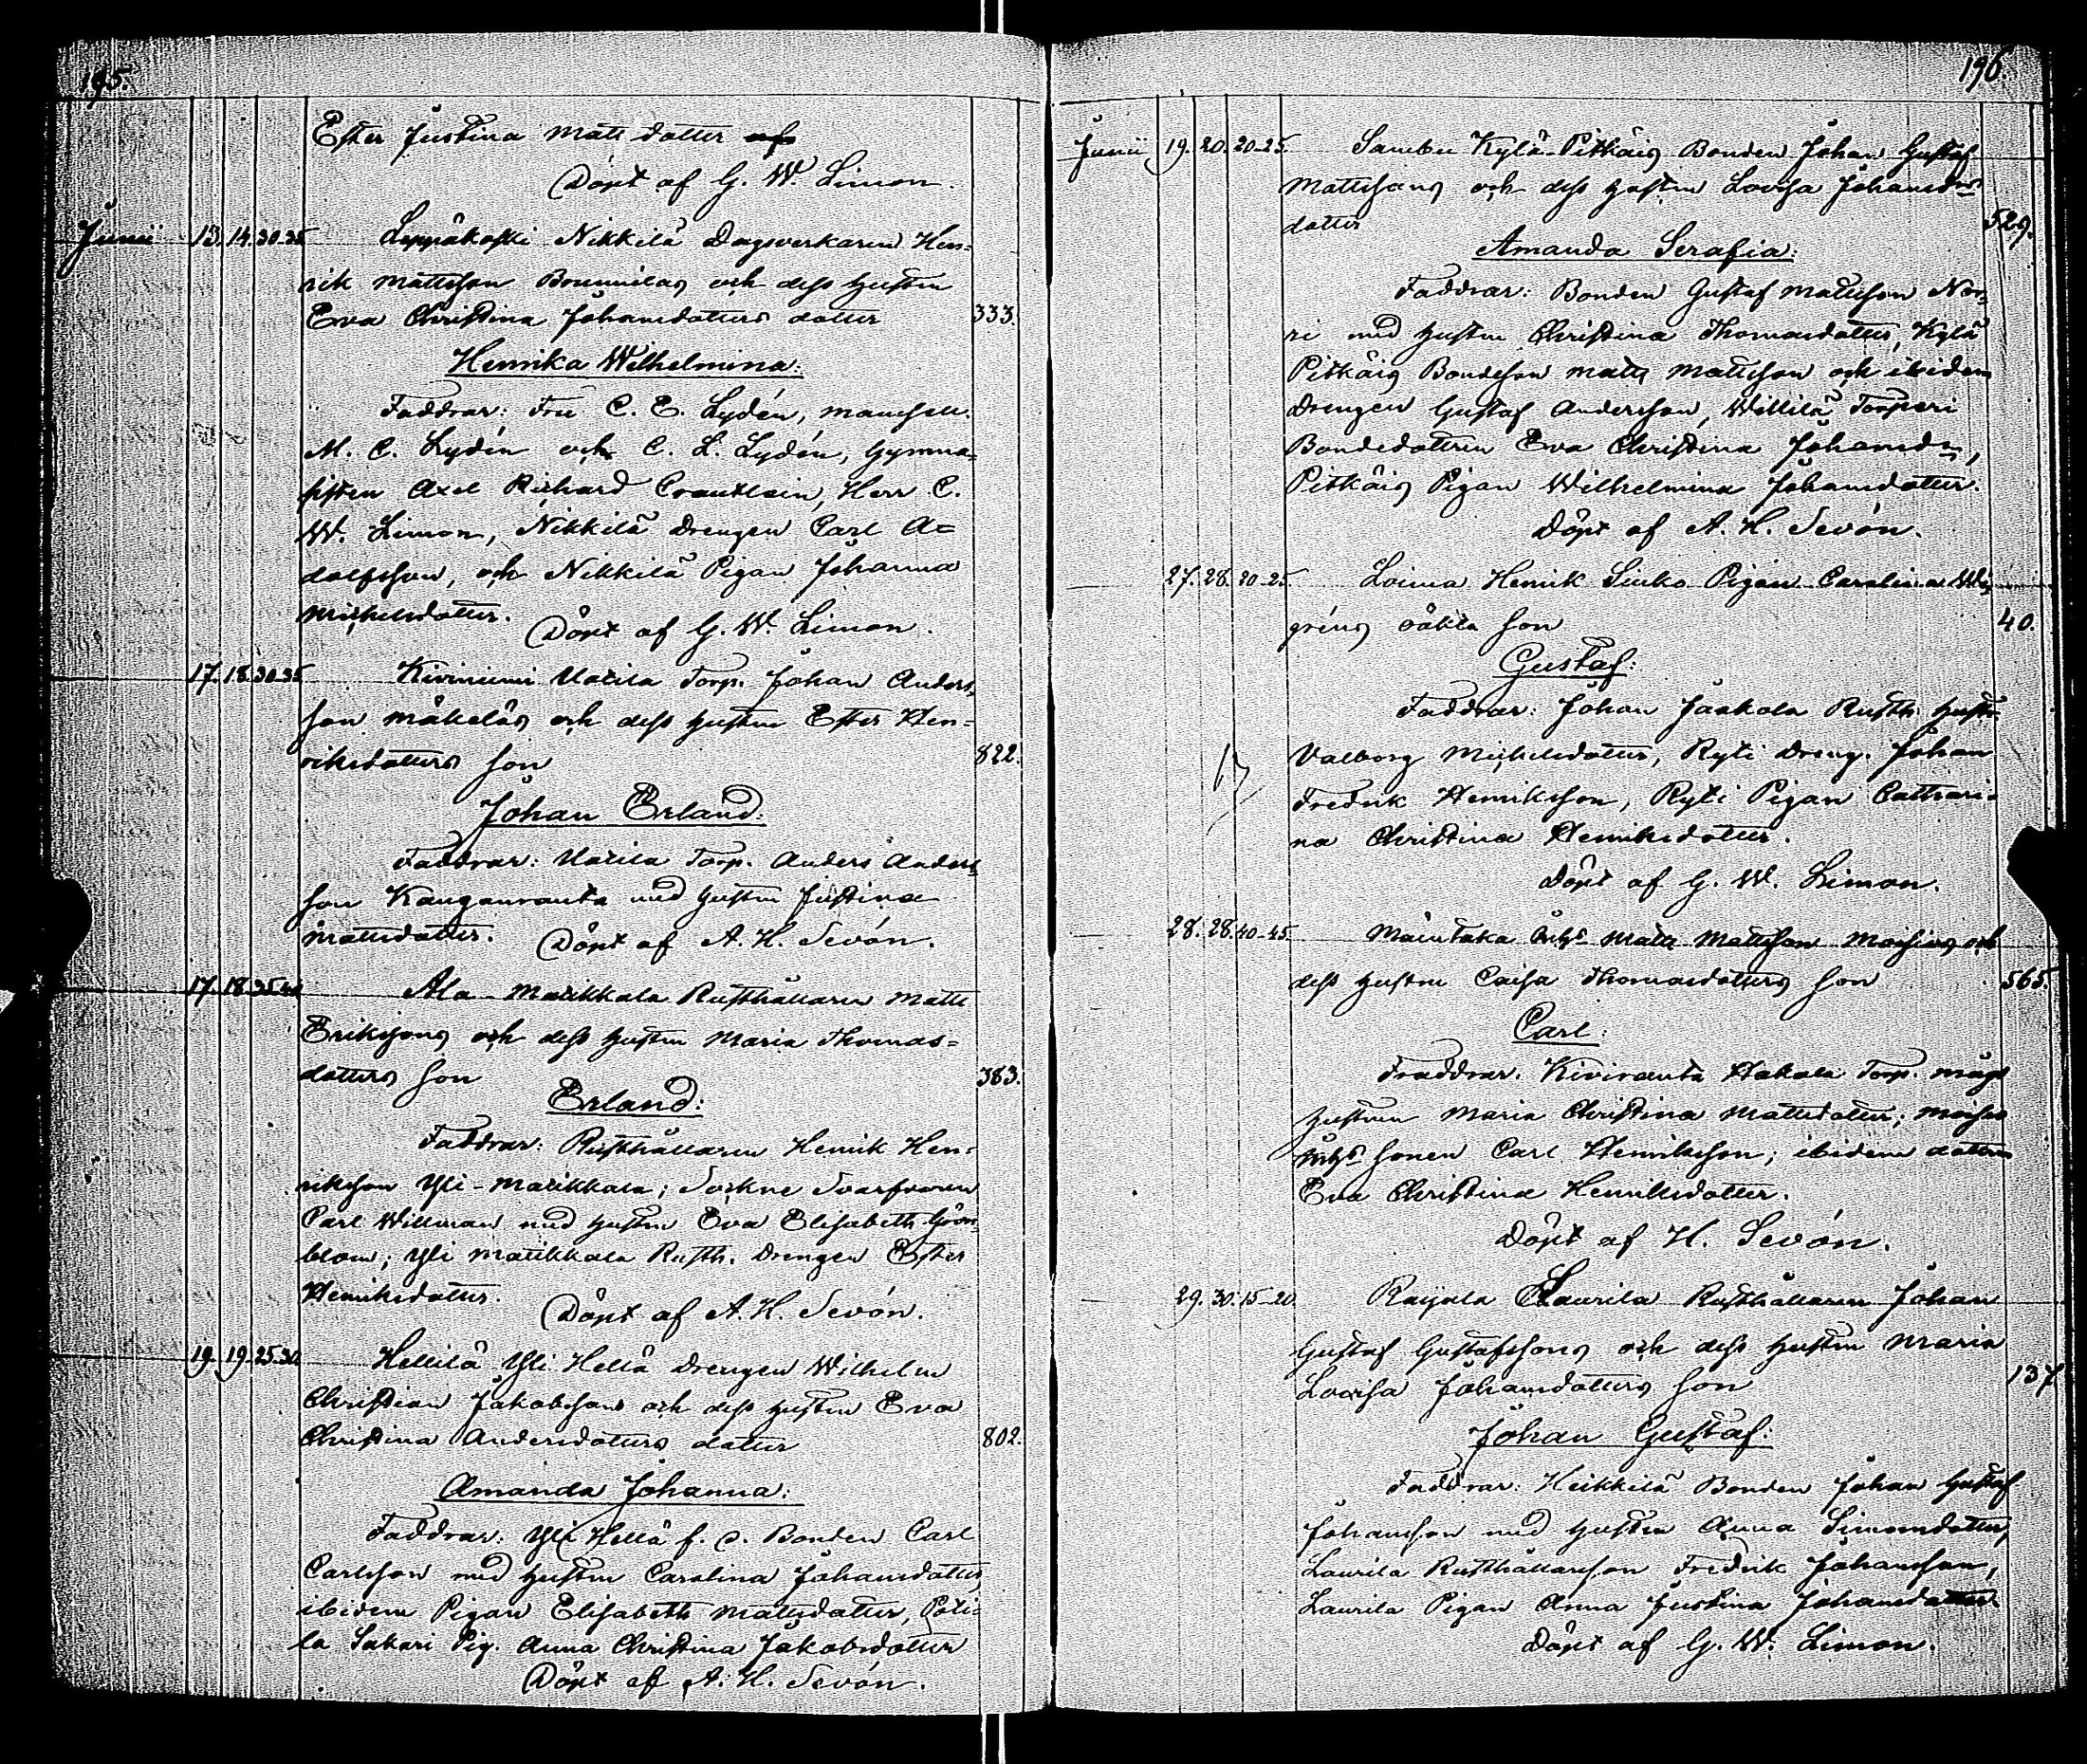 195.
Ester Justina Mattsdotter af
Döpt af G. W. Limon.
Junii 13. 14. 30-35. Leppäkoski Nikkilä Dagsverkaren Hen-
rik Mattsson Brunnilas och dess hustru
Eva Christina Johansdotters dotter 333.
Henrika Wilhelmina:
Faddrar: Fru C. E. Lydén, Mamsell.
M. C. Lydén och C. L. Lydén, Gymna-
sisten Axel Richard Crautlein, Herr C.
W. Limon, Nikkilä Drengen Carl A-
dolfsson, och Nikkilä Pigan Johanna
Michelsdotter. Döpt af G. W. Limon.
17. 18. 30-35. Kiviniemi Uotila Torp. Johan Anders-
son Mäkeläs och dess hustru Ester Hen-
riksdotters son 822.
Johan Erland:
Faddrar: Uotila Torp. Anders Anders-
son Kanganranta med hustru Justina
Mattsdotter. Döpt af A. H. Sevón.
17. 18. 35-40. Ala-Matikkala Rusthållaren Matts
Erikssons och dess hustru Maria Thomas-
dotters son 383.
Erland:
Faddrar: Rusthållaren Henrik Hen-
riksson Yli-Matikkala; Sockne Svarfvaren
Carl Willman med hustru Eva Elisabeth Grön-
blom; Yli Matikkala Rusth. Drengen Ester
Henriksdotter.
Döpt af A. H. Sevón.
19. 19. 25-30. Hellilä Yli Hellä Drengen Wilhelm
Christian Jakobssons och dess hustru Eva
Christina Andersdotters dotter 802.
Amanda Johanna:
Faddrar: Yli Hellä f. d. Bonden Carl
Carlsson med hustru Carolina Johansdotter,
ibidem Pigan Elisabeth Mattsdotter, Poti-
la Sakari Pig. Anna Christina Jakobsdotter
Döpt af A. H. Sevón.
196.
Junii 19. 20. 20-25. Sambu Kylä-Pitkäis Bonden Johan Gustaf
Mattssons och dess hustru Lovisa Johansdrs
dotter 529.
Amanda Serafia:
Faddrar: Bonden Gustaf Mattsson Nor-
ri med hustru Christina Thomasdotter, Kylä
Pitkäis Bondeson Matts Mattsson och ibidem
Drengen Gustaf Andersson, Willilä Torperi
Bondedottren Eva Christina Johansdr,
Pitkäis Pigan Wilhelmina Johansdotter.
Döpt af A. H. Sevón.
27. 28. 20-25. Loima Henrik Sinko Pigan Carolina
gréns oäkta son 40.
Gustaf:
Faddrar: Johan Jaakola Rusth. hustr.
Valborg Michelsdotter, Ryti Dreng. Johan
Fredrik Henriksson, Ryti Pigan Cathari-
na Christina Henriksdotter.
Döpt af G. W. Limon.
28. 28. 40-45. Mäentaka Matts Mattsson Moisios och
dess hustru Caisa Thomasdotters son 565.
Carl:
Fraddrar. Kiviranta Hakala Torp. mågs
hustrun Maria Christina Mattsdotter; Moisio
sonen Carl Henriksson; ibidem dottren
Eva Christina Henriksdotter.
Döpt af H. Sevón.
29. 30. 15-20. Raijala Laurila Rusthållaren Johan
Gustaf Gustafssons och dess hustru Maria
Lovisa Johansdotters son 137.
Johan Gustaf:
Faddrar: Heikkilä Bonden Johan Gustaf
Johansson med hustru Anna Simonsdotter,
Laurila Rusthållareson Fredrik Johansson,
Laurila Pigan Anna Justina Johansdotter
Döpt af G. W. Limon.